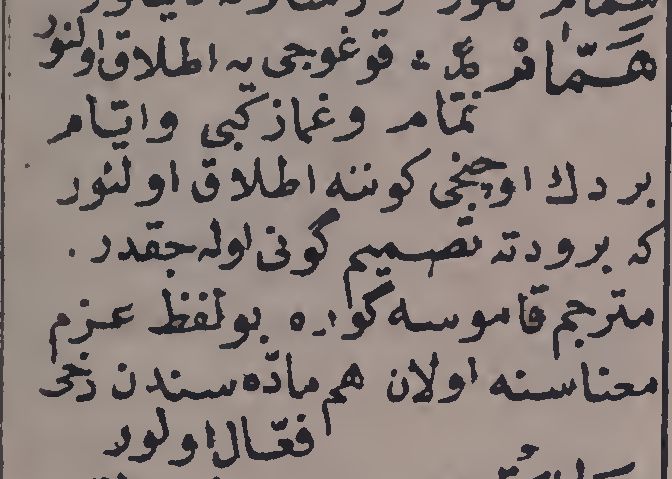 همّام ع‍ : قوغوجى يه اطلاق اولنور
نمّام وغماز كبى وايّام
بردك اوچنجى كوننه اطلاق اولنور
كه برودته تصميم كونى اوله جقدر .
مترجم قاموسه كوره بو لفظ عزم
معناسنه اولان هم مادّه سندن دخى
فعّال اولور